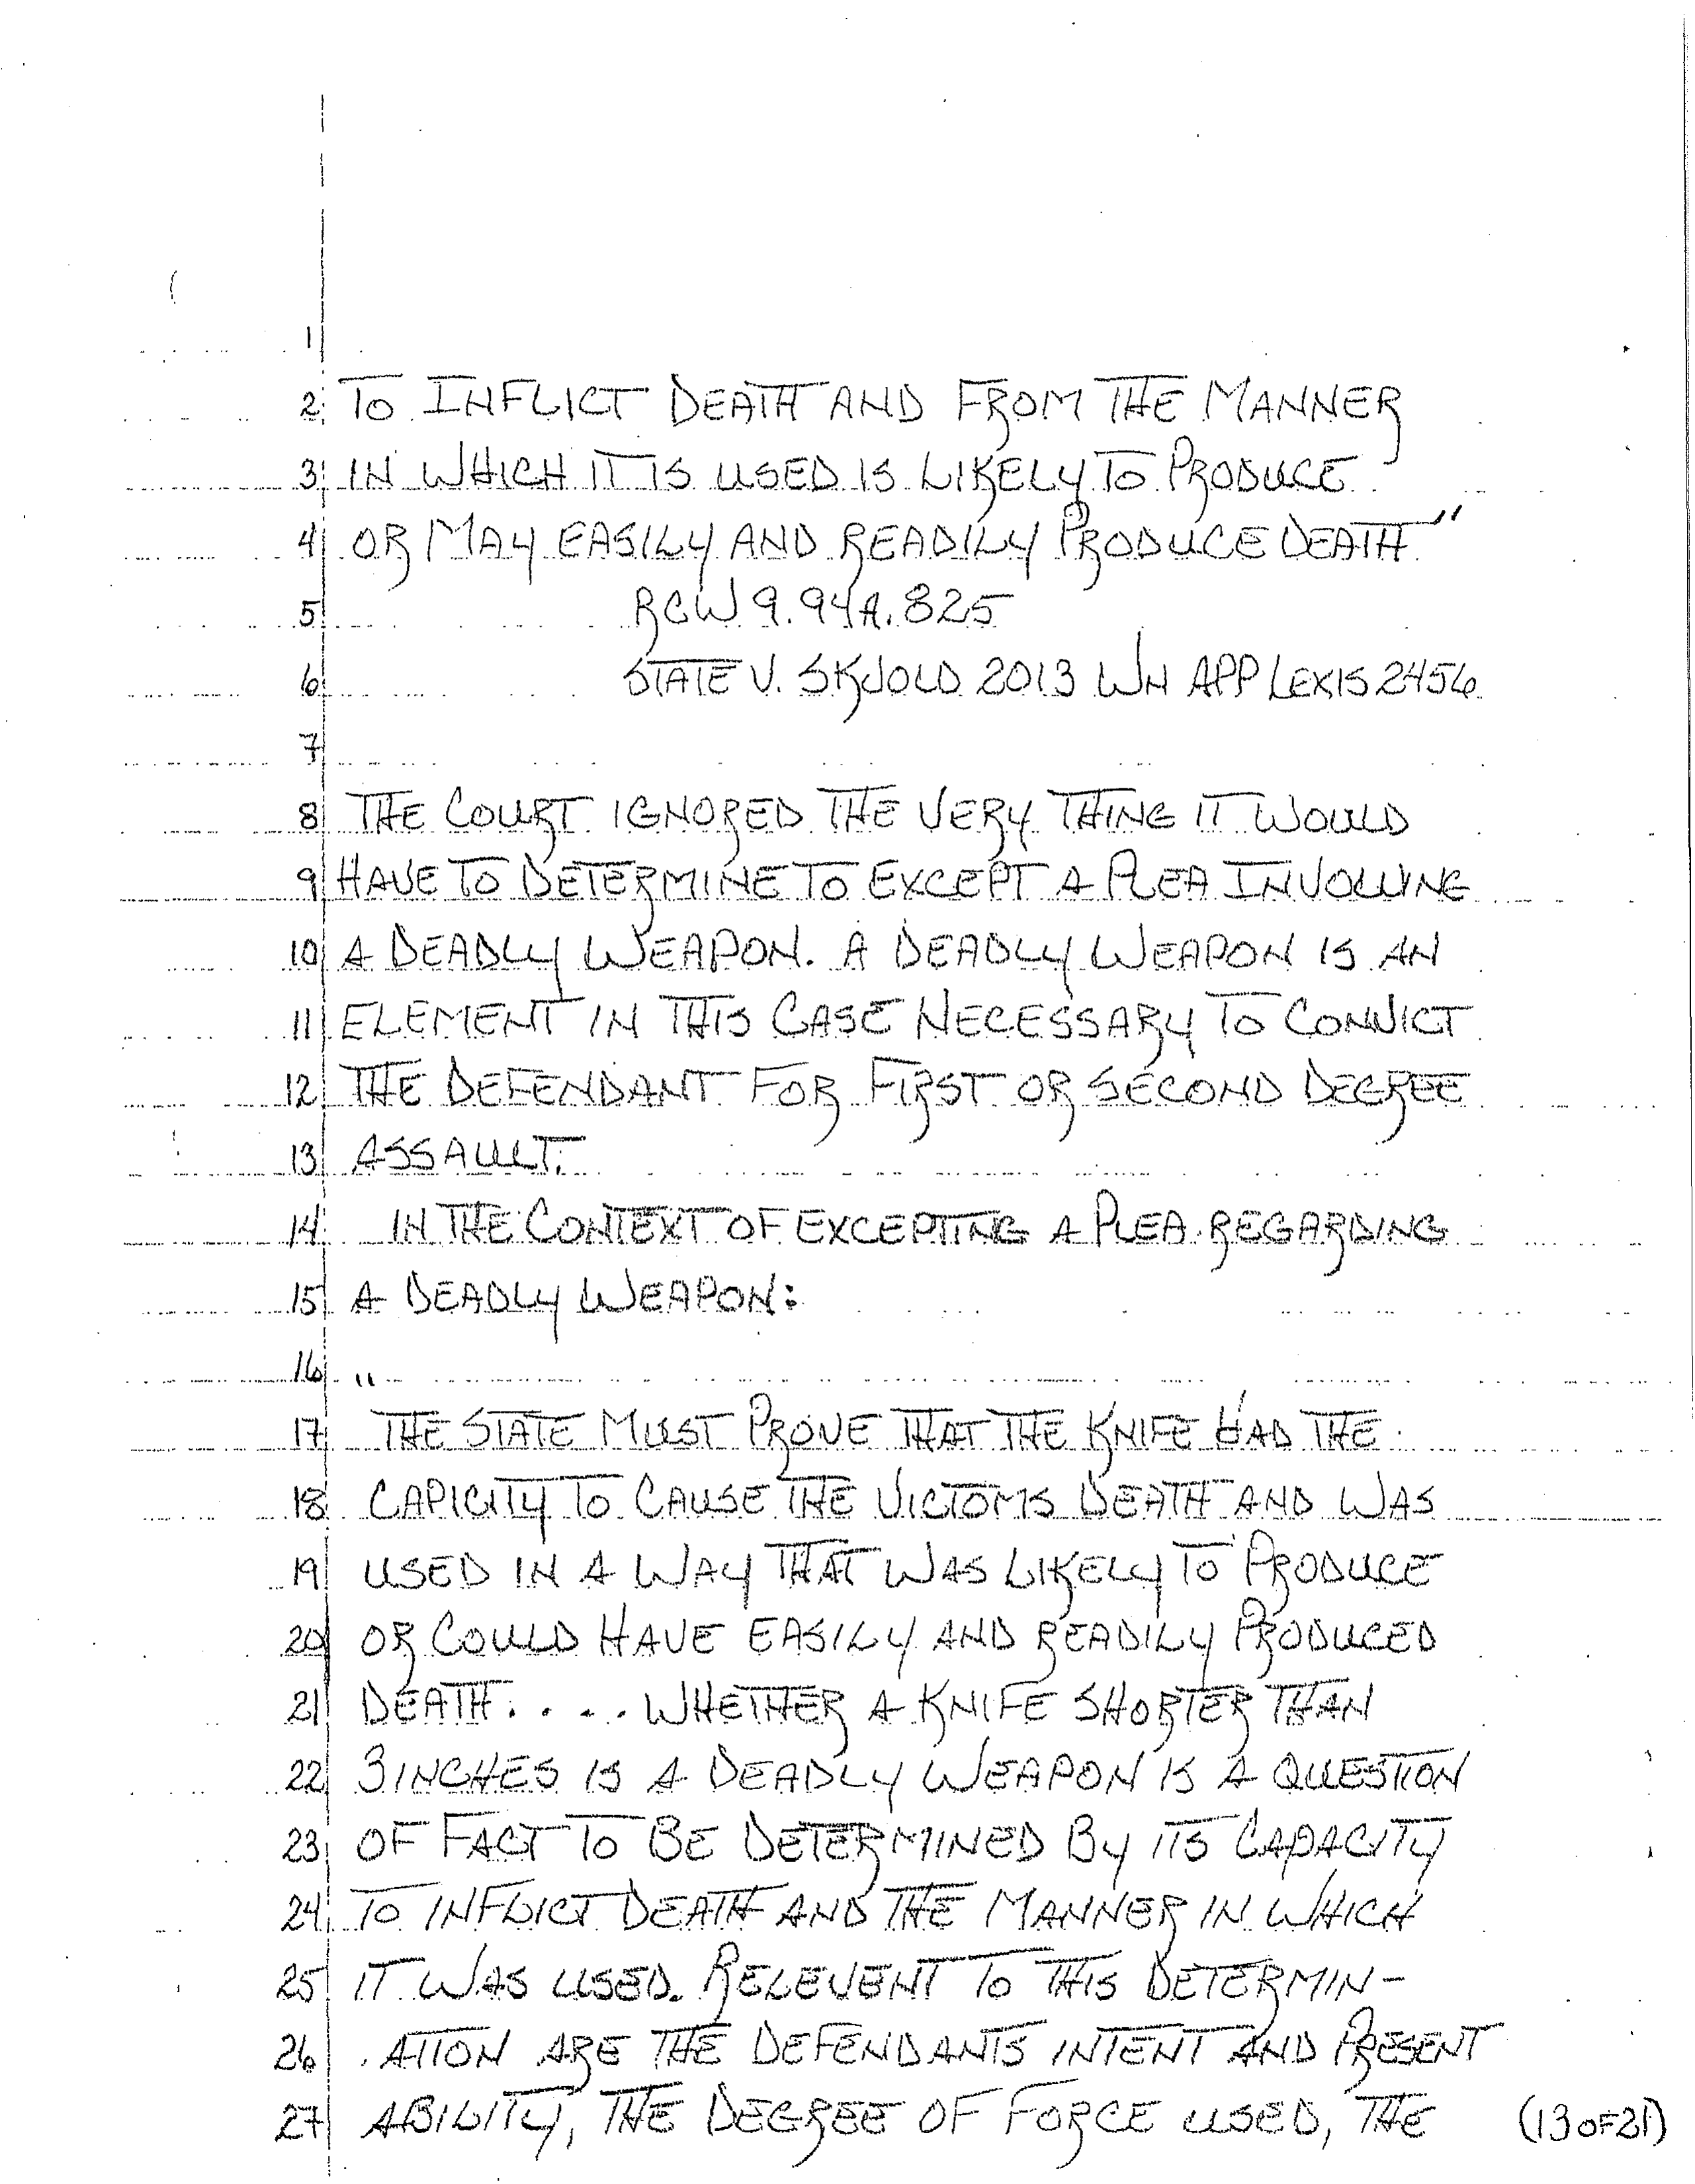 1
2 TO INFLICT DEATH AND FROM THE MANNER
3 IN WHICH IT IS USED IS LIKELY TO PRODUCE
4 OR MAY EASILY AND READILY PRODUCE DEATH"
5 RCW 9.94A.825
6 STATE V. SKJOLD 2013 WN APP LEXIS 2456
7
8 THE COURT IGNORED THE VERY THING IT WOULD
9 HAVE TO DETERMINE TO EXCEPT A PLEA INVOLVING
10 A DEADLY WEAPON. A DEADLY WEAPON IS AN
11 ELEMENT IN THIS CASE NECESSARY TO CONVICT
12 THE DEFENDANT FOR FIRST OR SECOND DEGREE
13 ASSAULT.
14 IN THE CONTEXT OF EXCEPTING A PLEA REGARDING
15 A DEADLY WEAPON:
16 "
17 THE STATE MUST PROVE THAT THE KNIFE HAD THE
18 CAPICITY TO CAUSE THE VICTOMS DEATH AND WAS
19 USED IN A WAY THAT WAS LIKELY TO PRODUCE
20 OR COULD HAVE EASILY AND READILY PRODUCED
21 DEATH. . . . WHETHER A KNIFE SHORTER THAN
22 3 INCHES IS A DEADLY WEAPON IS A QUESTION
23 OF FACT TO BE DETERMINED BY ITS CAPACITY
24 TO INFLICT DEATH AND THE MANNER IN WHICH
25 IT WAS USED. RELEVENT TO THIS DETERMIN-
26 ATION ARE THE DEFENDANTS INTENT AND PRESENT
27 ABILITY, THE DEGREE OF FORCE USED, THE (13 OF 21)